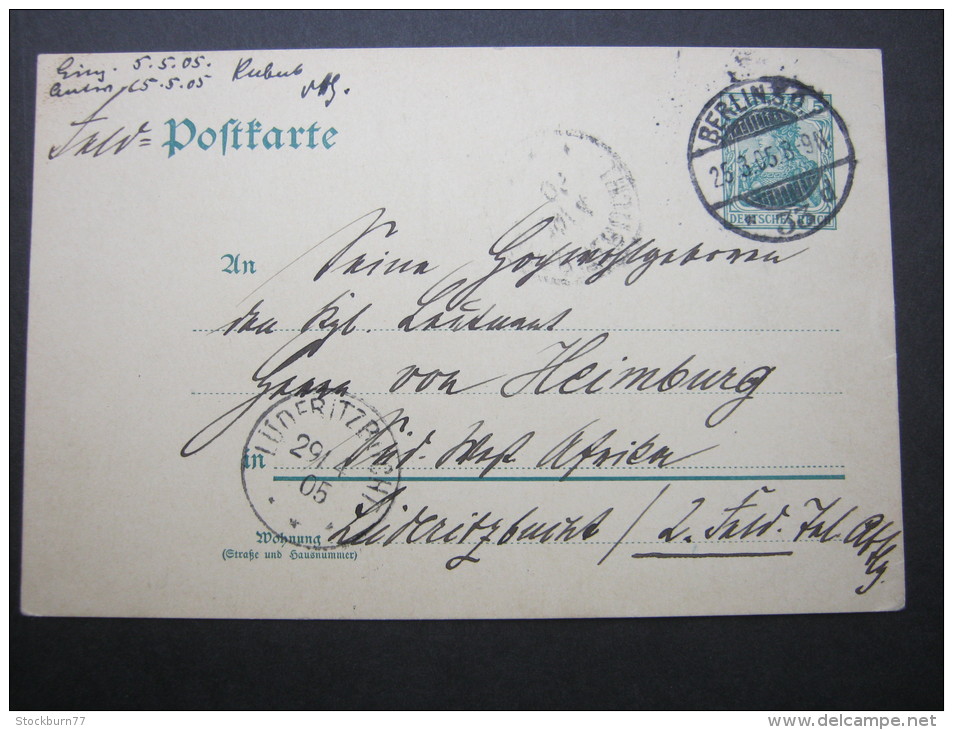 Eing. 5.5.05.
Antw. 15.5.05 Kubub
Feld = Postkarte
BERLIN S.O.
25.3.05.8-9N.
* 33 d
DEUTSCHES REICH
An Seine Hochwohlgeboren
den Kgl. Leutnant
Herrn von Heimburg
LÜDERITZBUCHT
29/4
05
in Süd-West Afrika
Wohnung Lüderitzbucht / 2. Feld. Tel. Abtlg.
(Straße und Hausnummer)
Stockburn77
www.delcampe.net